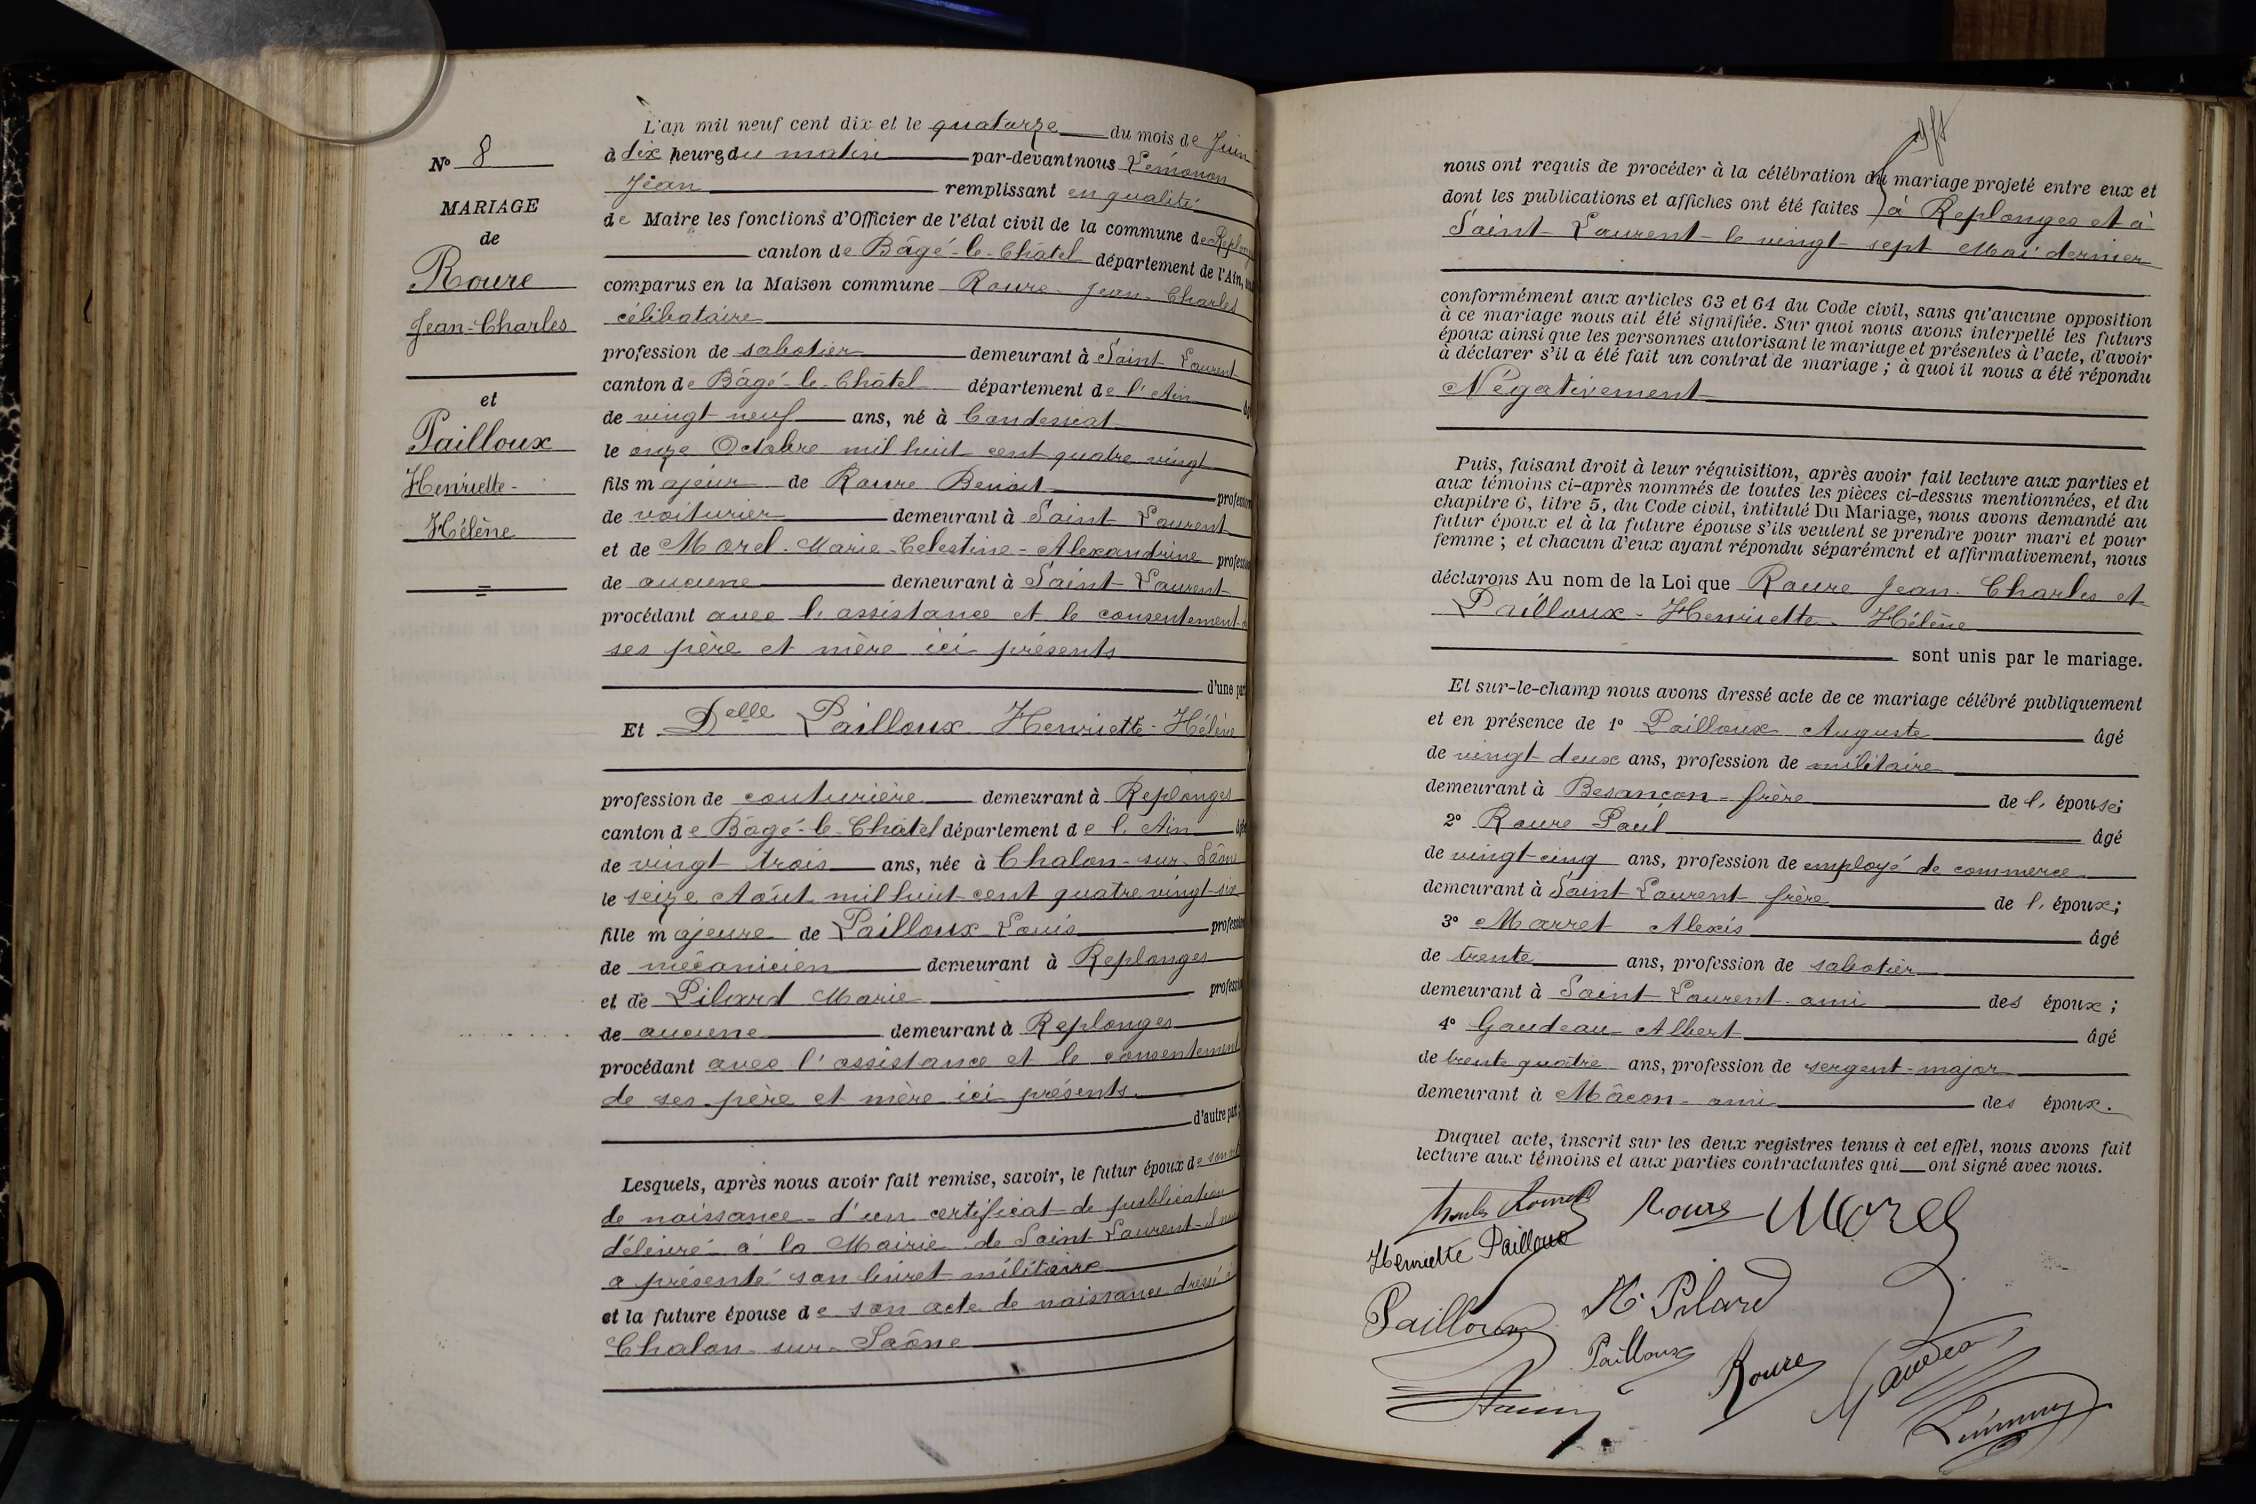 N° 8
MARIAGE
de
Roure
Jean-Charles
et
Pailloux
Henriette-
Hélène
L'an mil neuf cent dix et le quatorze du mois de Juin
à dix heures du matin par-devant nous Lémonon
Jean remplissant en qualité
de Maire les fonctions d'Officier de l'état civil de la commune de
canton de Bâgé-le-Châtel département de l'Ain,
comparus en la Maison commune Roure Jean-Charles
célibataire
profession de sabotier demeurant à Saint-Laurent
canton de Bâgé-le-Châtel département de l'Ain
de vingt neuf ans, né à Condeissiat
le onze Octobre mil huit cent quatre vingt
fils majeur de Roure Benoit profession
de voiturier demeurant à Saint Laurent
et de Morel-Marie-Celestine-Alexandrine profession
de aucune demeurant à Saint-Laurent
procédant avec l'assistance et le consentement
ses père et mère ici présents
d'une part
Et Delle Pailloux Henriette-Hélène
profession de couturière demeurant à Replonges
canton de Bâgé-le-Châtel département de l'Ain
de vingt trois ans, née à Chalon-sur-Saône
le seize Août mil huit cent quatre vingt-six
fille majeure de Pailloux Louis profession
de mécanicien demeurant à Replonges
et de Pilard Marie profession
de aucune demeurant à Replonges
procédant avec l'assistance et le consentement
de ses père et mère ici présents
d'autre part;
Lesquels, après nous avoir fait remise, savoir, le futur époux de son
de naissance-d'un certificat de publication
délivré à la Mairie de Saint Laurent-il nous
a présenté son livret militaire
et la future épouse de son acte de naissance dressé à
Chalon-sur-Saône
nous ont requis de procéder à la célébration du mariage projeté entre eux et
dont les publications et affiches ont été faites à Replonges et à
Saint-Laurent-le vingt-sept Mai dernier
conformément aux articles 63 et 64 du Code civil, sans qu'aucune opposition
à ce mariage nous ait été signifiée. Sur quoi nous avons interpellé les futurs
époux ainsi que les personnes autorisant le mariage et présentes à l'acte, d'avoir
à déclarer s'il a été fait un contrat de mariage; à quoi il nous a été répondu
Négativement
Puis, faisant droit à leur réquisition, après avoir fait lecture aux parties et
aux témoins ci-après nommés de toutes les pièces ci-dessus mentionnées, et du
chapitre 6, titre 5, du Code civil, intitulé Du Mariage, nous avons demandé au
futur époux et à la future épouse s'ils veulent se prendre pour mari et pour
femme; et chacun d'eux ayant répondu séparément et affirmativement, nous
déclarons Au nom de la Loi que Roure Jean-Charles et
Pailloux-Henriette-Hélène
sont unis par le mariage.
Et sur-le-champ nous avons dressé acte de ce mariage célébré publiquement
et en présence de 1° Pailloux Auguste âgé
de vingt deux ans, profession de militaire
demeurant à Besançon-frère de l'épouse;
2° Roure Paul âgé
de vingt-cinq ans, profession de employé de commerce
demeurant à Saint Laurent frère de l'époux;
3° Marret Alexis âgé
de trente ans, profession de sabotier
demeurant à Saint-Laurent-ami des époux;
4° Gaudeau Albert âgé
de trente quatre ans, profession de sergent-major
demeurant à Mâcon-ami des époux.
Duquel acte, inscrit sur les deux registres tenus à cet effet, nous avons fait
lecture aux témoins et aux parties contractantes qui ont signé avec nous.
Roure Morel
Henriette Pailloux
Pailloux Pilard
Pailloux Roure